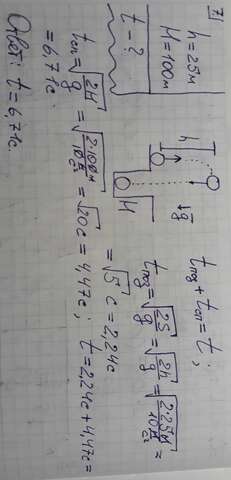 7)
h = 25м
H = 100м
t - ?
h
H
g
t под + t оп = t;
t под = √(2S/g) = √(2h/g) = √(2·25м / 10 м/с²) =
= √5 с = 2,24с
t оп = √(2H/g) = √(2·100м / 10 м/с²) = √20 с = 4,47с; t = 2,24с + 4,47с =
= 6,71с.
Ответ: t = 6,71с.